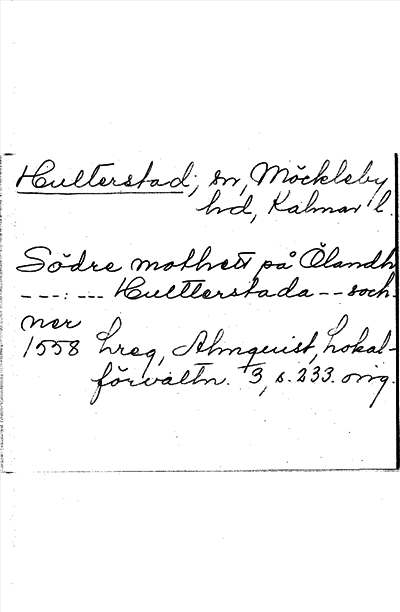 Hulterstad, sn, Möckleby
hd, Kalmar l.
Södre mothett på Ölandh
---:--- Hulltterstada -- soch-
ner
1558 hreg, Almquist, Lokal-
förvaltn. 3, s. 233. orig.